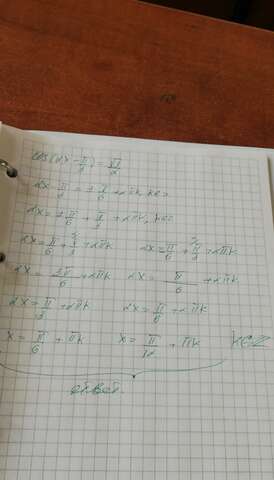 cos(2x - π/3) = √3/2
2x - π/3 = ± π/6 + 2πk, k∈Z
2x = ± π/6 + π/3 + 2πk, k∈Z
2x = π/6 + π/3 + 2πk 2x = -π/6 + π/3 + 2πk
2x = 3π/6 + 2πk 2x = π/6 + 2πk
2x = π/2 + 2πk 2x = π/6 + 2πk
x = π/6 + πk x = π/12 + πk k∈Z
ответ